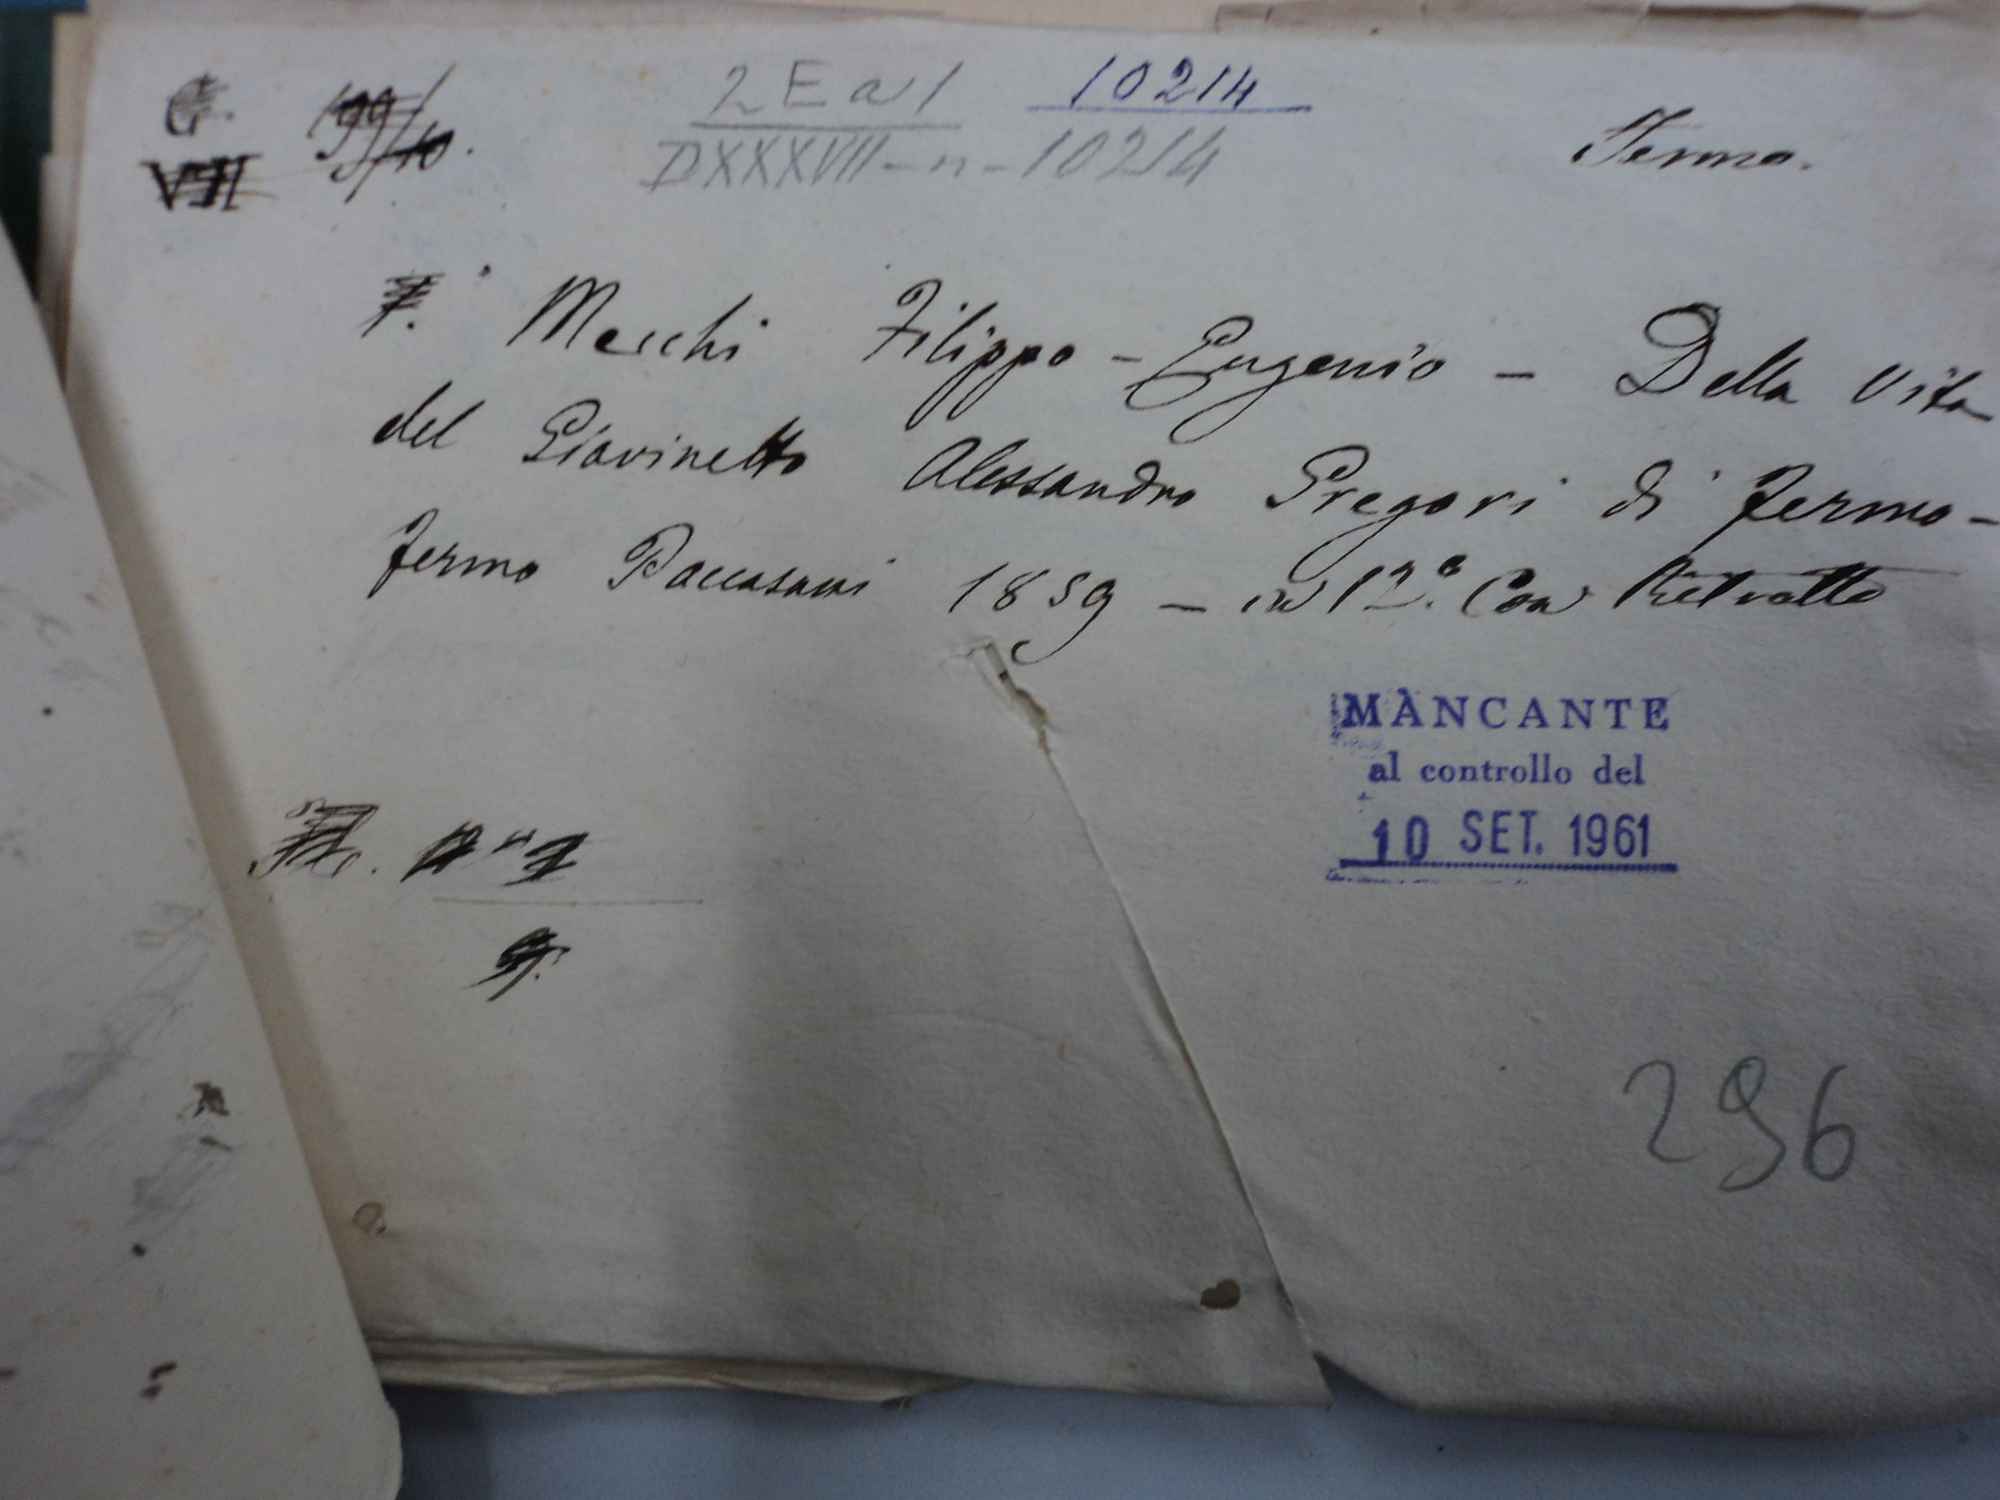 2 E a 1 10214
DXXXVII - n - 10214
VII
Fermo.
Mecchi Filippo - Eugenio - Della Vita
del Giovinetto Alessandro Gregori di Fermo -
Fermo Paccasassi 1859 - in 12.° Con Ritratto
MANCANTE
al controllo del
10 SET. 1961
296